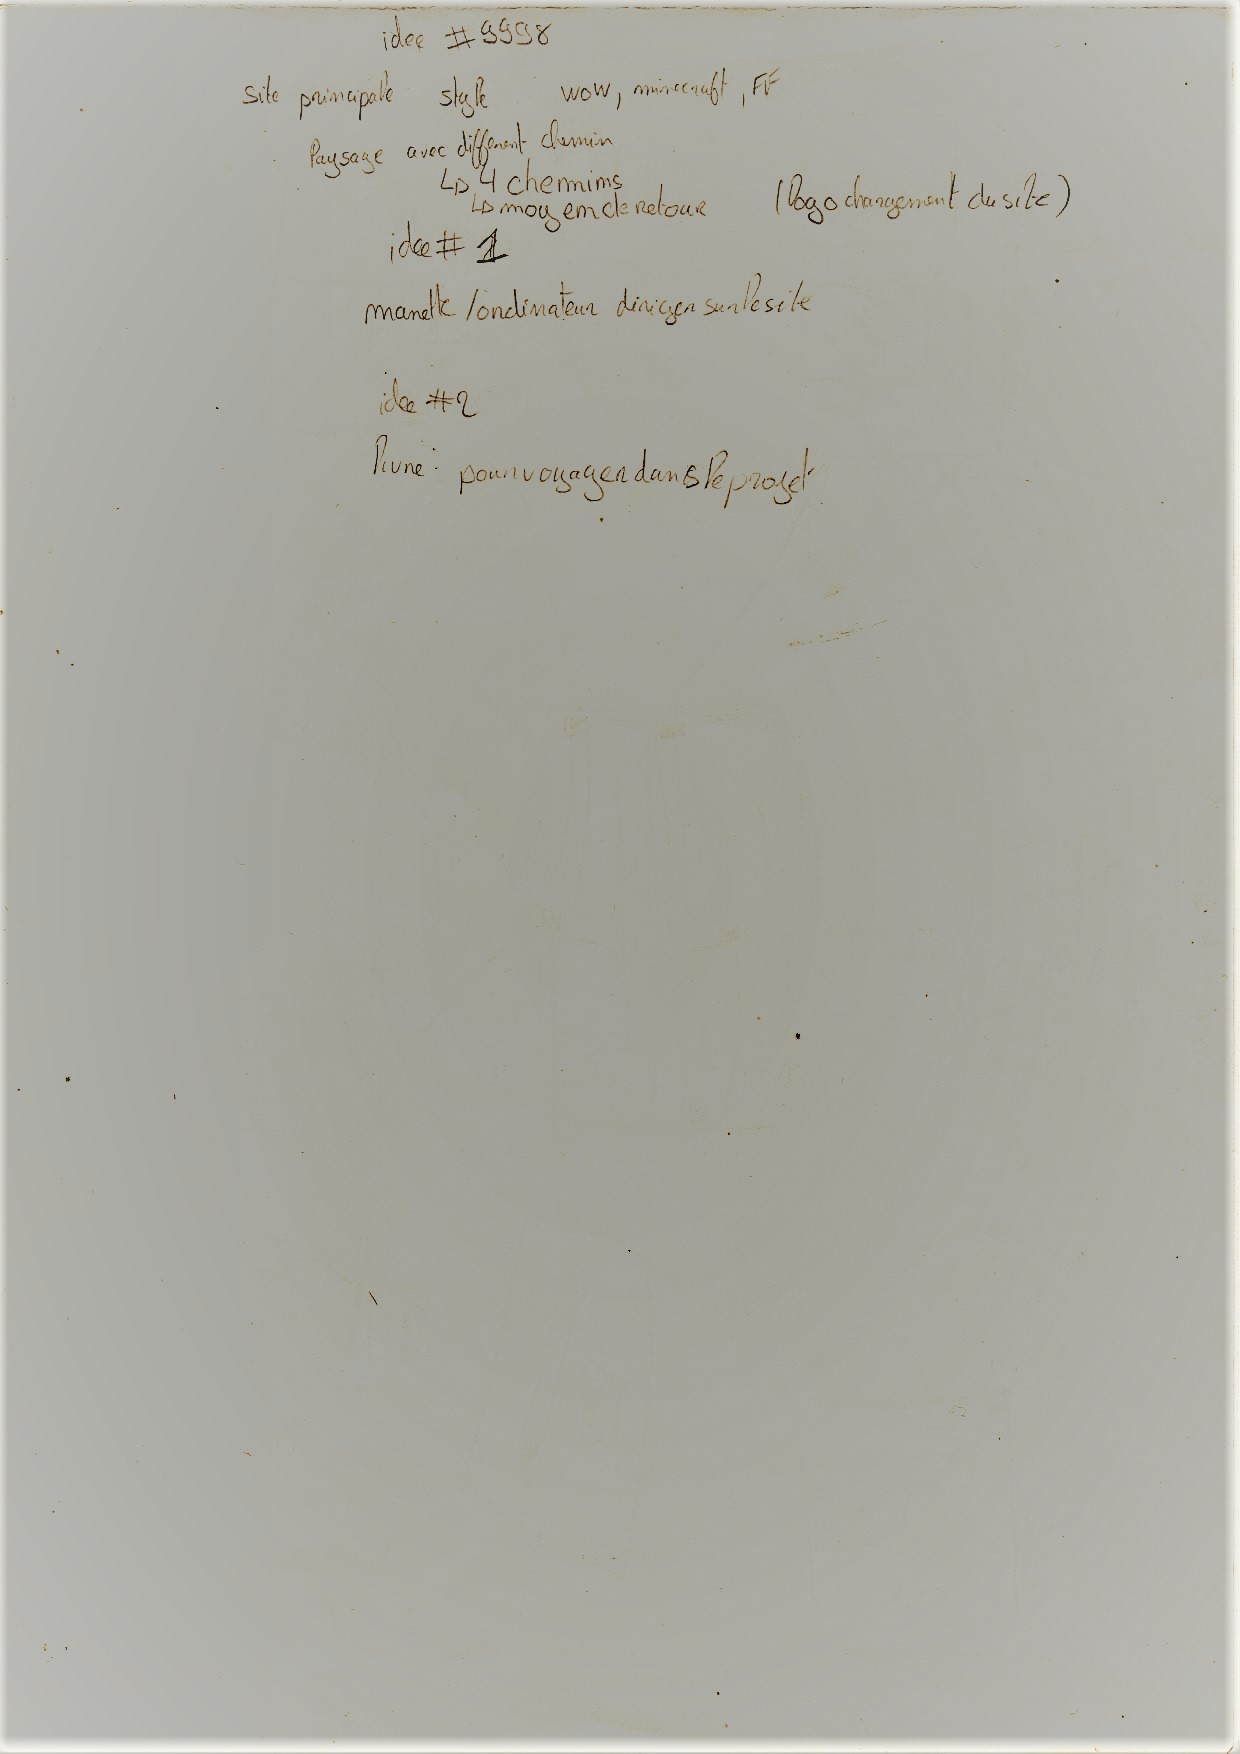 idee #9998
Site principale style wow, minecraft, FF
Paysage avec different chemin
↳ 4 chemins
↳ moyen de retour (logo changement du site)
idee # 1
manette /ordinateur diriger sur le site
idee #2
livre : pour voyager dans le projet